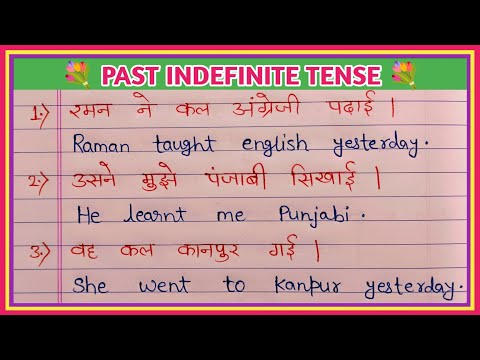 💐 PAST INDEFINITE TENSE 💐
1.) रमन ने कल अंग्रेजी पढाई |
Raman taught english yesterday.
2.) उसने मुझे पंजाबी सिखाई |
He learnt me Punjabi.
3.) वह कल कानपुर गई |
She went to Kanpur yesterday.